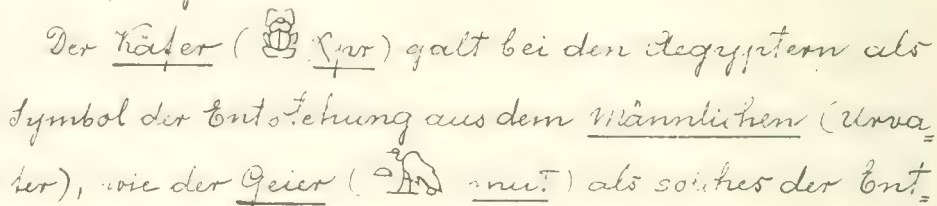 Der Käfer (𓆣 χpr) galt bei den Aegyptern als
Symbol der Entstehung aus dem Männlichen (Urva=
ter), wie der Geier (𓅐 mut) als solches der Ent=